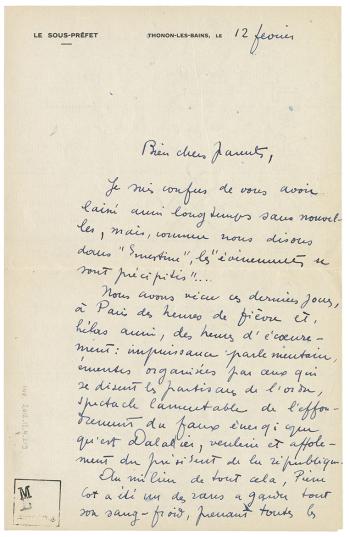 LE SOUS-PRÉFET
THONON-LES-BAINS, LE 12 février
Bien chers parents,
Je suis confus de vous avoir
laissé aussi longtemps sans nouvel-
les, mais, comme nous disons
dans "Ernestine", les "événements se
sont précipités"...
Nous avons vécu ces derniers jours,
à Paris des heures de fièvre et,
hélas aussi, des heures d'écœure-
ment : impuissance parlementaire,
émeutes organisées par ceux qui
se disent les partisans de l'ordre,
spectacle lamentable de l'effon-
drement du faux énergique
qu'est Daladier, veulerie et affole-
ment du président de la république.
Au milieu de tout cela, Pierre
Cot a été un des rares a garder tout
son sang-froid, prenant toutes les
M